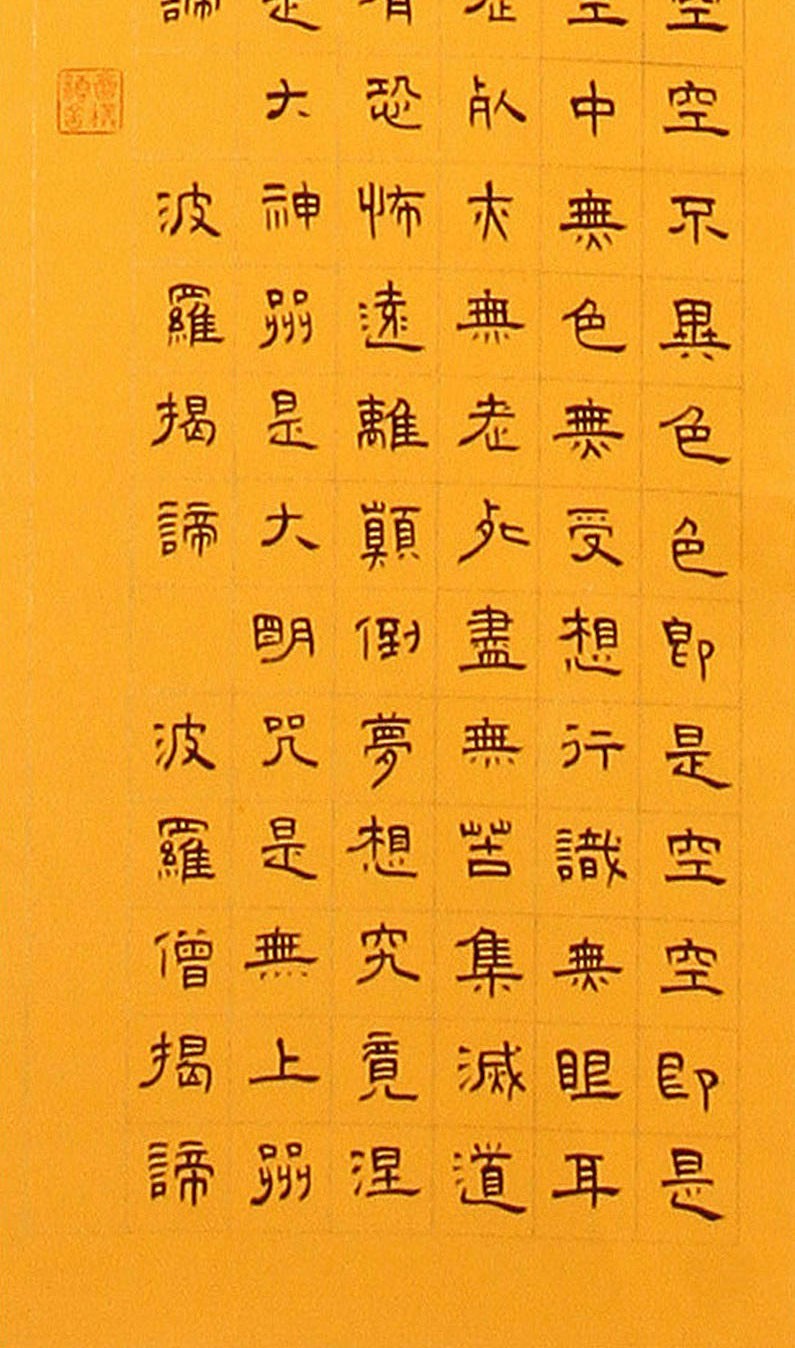 空空不異色色即是空空即是
空中無色無受想行識無眼耳
老死亦無老死盡無苦集滅道
有恐怖遠離顛倒夢想究竟涅
是大神咒是大明咒是無上咒
諦 波羅揭諦 波羅僧揭諦